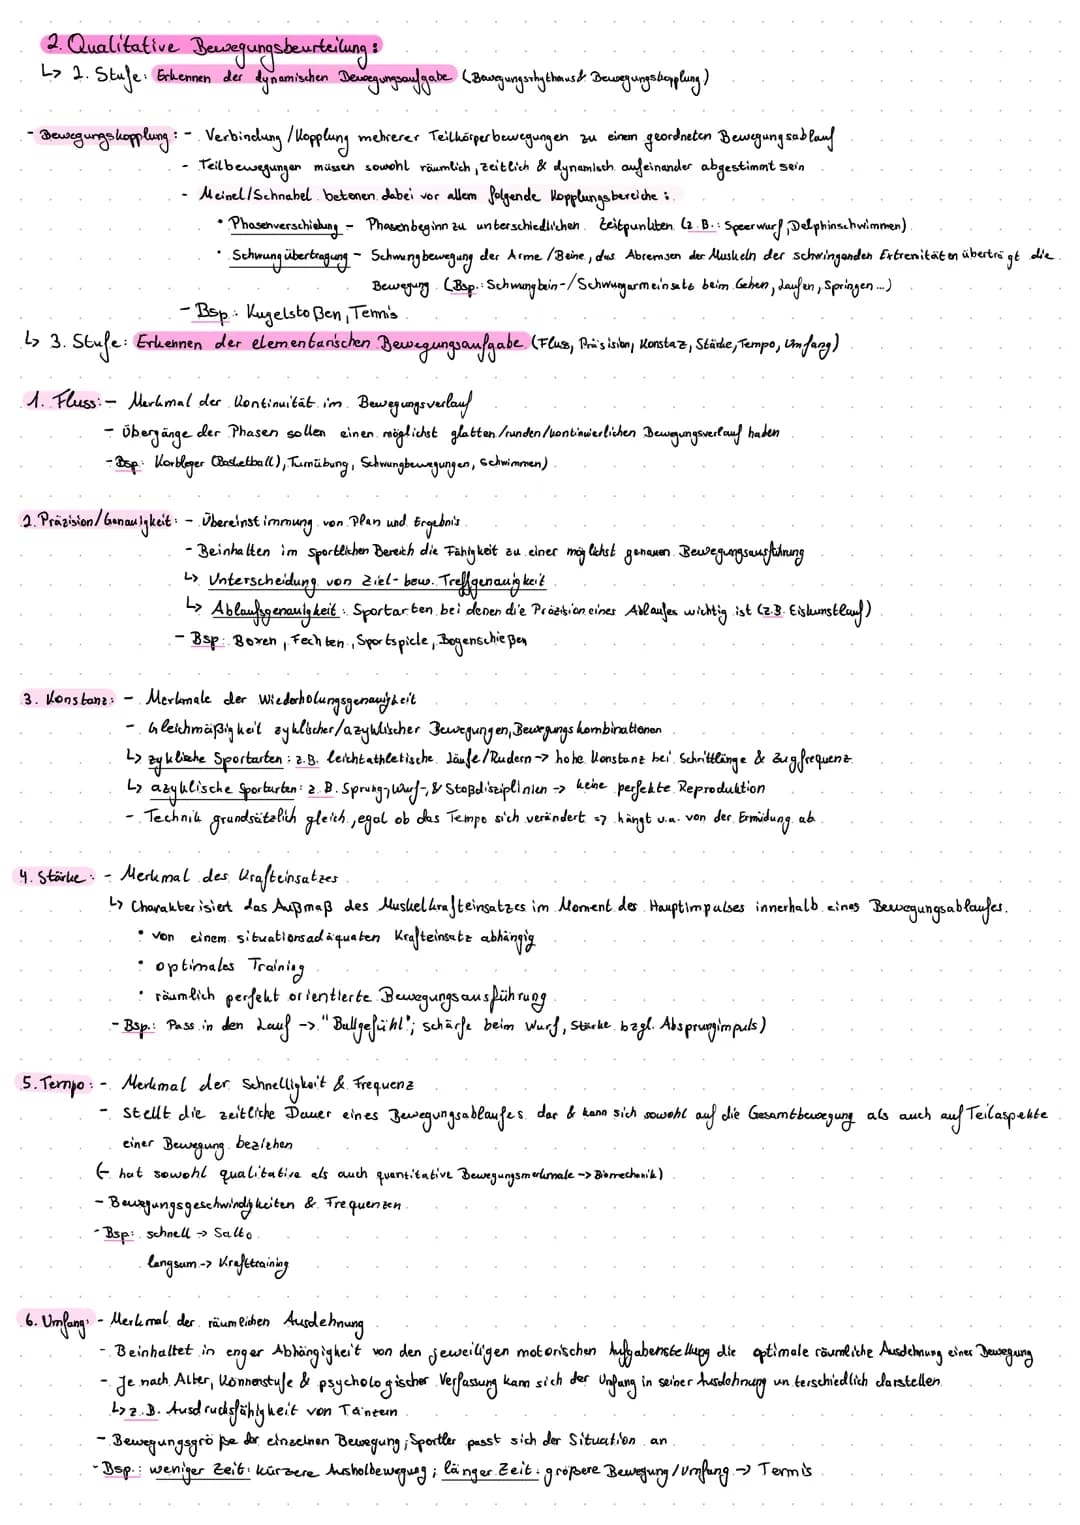 2. Qualitative Bewegungsbeurteilung:
↳ 2. Stufe: Erkennen der dynamischen Bewegungsaufgabe (Bewegungsrhythmus & Bewegungskopplung)
- Bewegungskopplung: - Verbindung/Kopplung mehrerer Teilkörperbewegungen zu einem geordneten Bewegungsablauf
- Teilbewegungen müssen sowohl räumlich, zeitlich & dynamisch aufeinander abgestimmt sein
- Meinel/Schnabel betonen dabei vor allem folgende Kopplungsbereiche:
• Phasenverschiebung - Phasenbeginn zu unterschiedlichen Zeitpunkten (z.B.: Speerwurf, Delphinschwimmen)
• Schwungübertragung - Schwungbewegung der Arme/Beine, das Abremsen der Muskeln der schwingenden Extremitäten überträgt die
Bewegung (Bsp.: Schwungbein-/Schwungarmeinsatz beim Gehen, Laufen, Springen...)
- Bsp.: Kugelstoßen, Tennis
↳ 3. Stufe: Erkennen der elementarischen Bewegungsaufgabe (Fluss, Präsision, Konstaz, Stärke, Tempo, Umfang)
1. Fluss: - Merkmal der Kontinuität im Bewegungsverlauf
- Übergänge der Phasen sollen einen möglichst glatten/runden/kontinuierlichen Bewegungsverlauf haben
- Bsp: Korbleger (Basketball), Turnübung, Schwungbewegungen, Schwimmen)
2. Präzision/Genauigkeit: - Übereinstimmung von Plan und Ergebnis
- Beinhalten im sportlichen Bereich die Fähigkeit zu einer möglichst genauen Bewegungsausführung
↳ Unterscheidung von Ziel- bzw. Treffgenauigkeit
↳ Ablaufsgenauigkeit: Sportarten bei denen die Präzision eines Ablaufes wichtig ist (z.B. Eiskunstlauf)
- Bsp: Boxen, Fechten, Sportspiele, Bogenschießen
3. Konstanz: - Merkmale der Wiederholungsgenauigkeit
- Gleichmäßigkeit zyklischer/azyklischer Bewegungen, Bewegungskombinationen
↳ zyklische Sportarten: z.B. leichtathletische Läufe/Rudern -> hohe Konstanz bei Schrittlänge & Zugfrequenz
↳ azyklische Sportarten: z.B. Sprung-, Wurf-, & Stoßdisziplinen -> keine perfekte Reproduktion
- Technik grundsätzlich gleich, egal ob das Tempo sich verändert => hängt u.a. von der Ermüdung ab
4. Stärke: - Merkmal des Krafteinsatzes
↳ Charakterisiert das Außmaß des Muskelkrafteinsatzes im Moment des Hauptimpulses innerhalb eines Bewegungsablaufes.
• von einem situationsadäquaten Krafteinsatz abhängig
• optimales Training
• räumlich perfekt orientierte Bewegungsausführung
- Bsp.: Pass in den Lauf -> "Ballgefühl"; schärfe beim Wurf, Stärke bzgl. Absprungimpuls)
5. Tempo: - Merkmal der Schnelligkeit & Frequenz
- stellt die zeitliche Dauer eines Bewegungsablaufes dar & kann sich sowohl auf die Gesamtbewegung als auch auf Teilaspekte
einer Bewegung beziehen
(- hat sowohl qualitative als auch quantitative Bewegungsmerkmale -> Biomechanik)
- Bewegungsgeschwindigkeiten & Frequenzen
- Bsp: schnell -> Salto
langsam -> Krafttraining
6. Umfang: - Merkmal der räumlichen Ausdehnung
- Beinhaltet in enger Abhängigkeit von den jeweiligen motorischen Aufgabenstellung die optimale räumliche Ausdehnung einer Bewegung
- Je nach Alter, Könnenstufe & psychologischer Verfassung kann sich der Umfang in seiner Ausdehnung unterschiedlich darstellen
↳ z.B. Ausdrucksfähigkeit von Tänzern
- Bewegungsgröße der einzelnen Bewegung; Sportler passt sich der Situation an
- Bsp.: weniger Zeit: kürzere Ausholbewegung; länger Zeit: größere Bewegung/Umfang -> Tennis